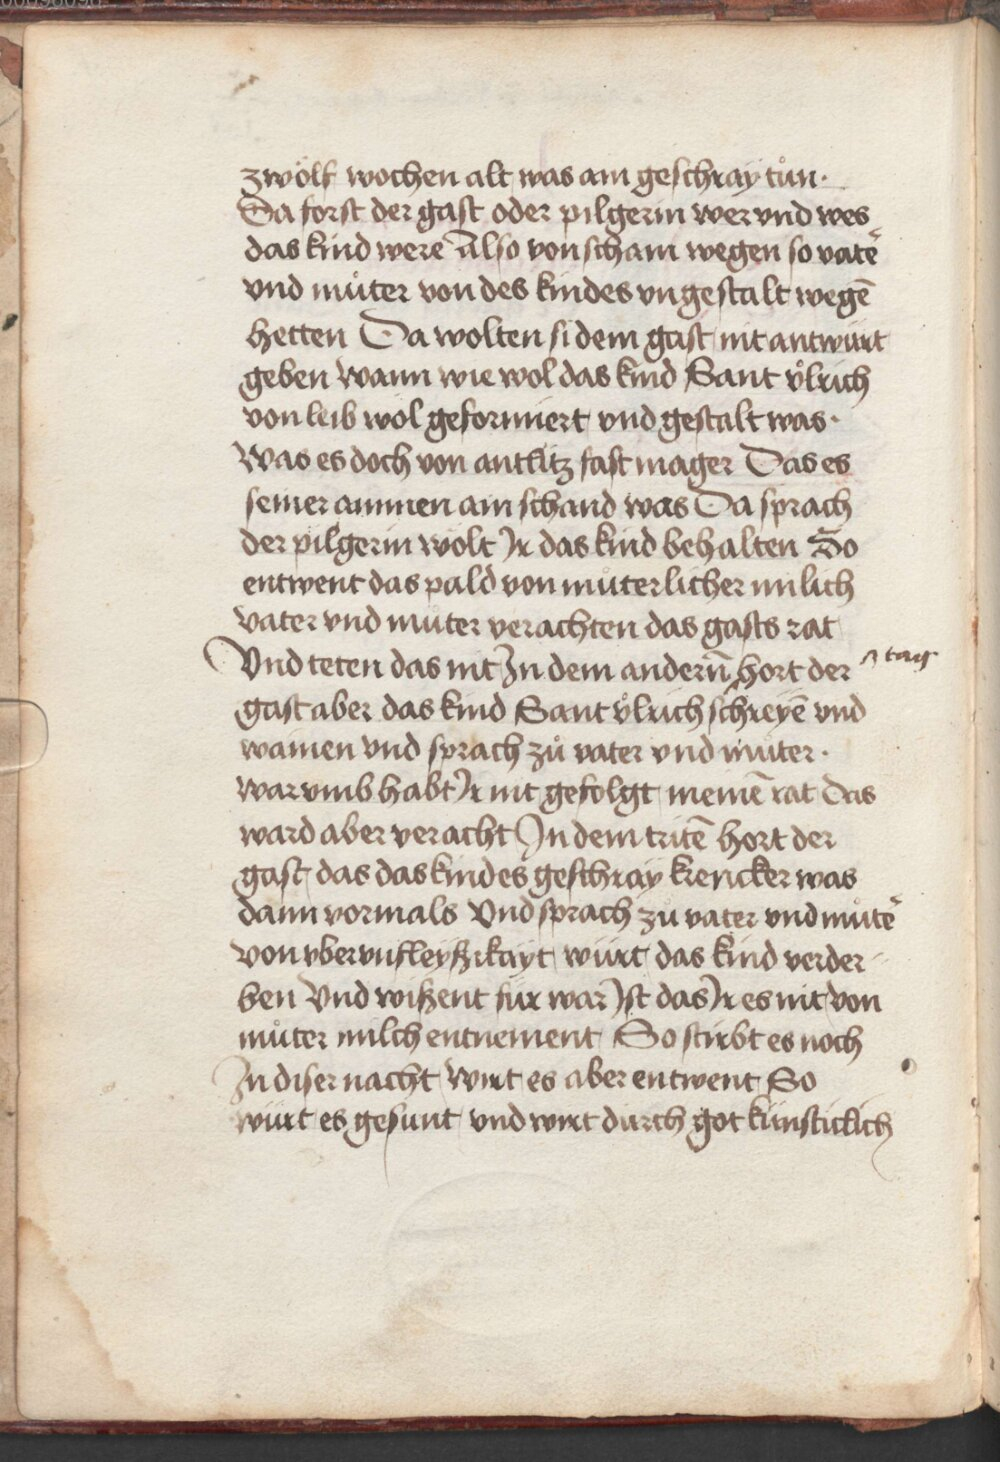 zwölf wochen alt was ain geschray tůn·
Da forst der gast oder pilgerin wer vnd wes
das kind were Also von scham wegen so vate᷒
vnd můter von des kindes vngestalt wegē
hetten Da wolten si dem gast nit antwürt
geben Wann wie wol das kind Sant vͦlrich
von leib wol geformiert vnd gestalt was·
Was es doch von antlitz fast mager Das es
seiner ammen ain schand was Da sprach
der pilgerin wölt Ir das kind behalten So
entwent das pald von můterlicher milich
vater vnd můter verachten das gasts rat
Vnd teten das nit In dem anderū hort der
tag
gast aber das kind Sant vͦlrich schreyē vnd
wainen vnd sprach zů vater vnd můter·
war vmb habt Ir nit gefolgt meinē rat Das
ward aber veracht In dem tritē hort der
gast das das kindes geschray krencker was
dann vormals Vnd sprach zů vater vnd můte᷒
von vber vnfleyszikayt würt das kind verder
ben Vnd wiszent für war Ist das Ir es nit von
můter milch entnement So stirbt es noch
In diser nacht Wirt es aber entwent So
würt es gesunt vnd wirt durch got künsticlich